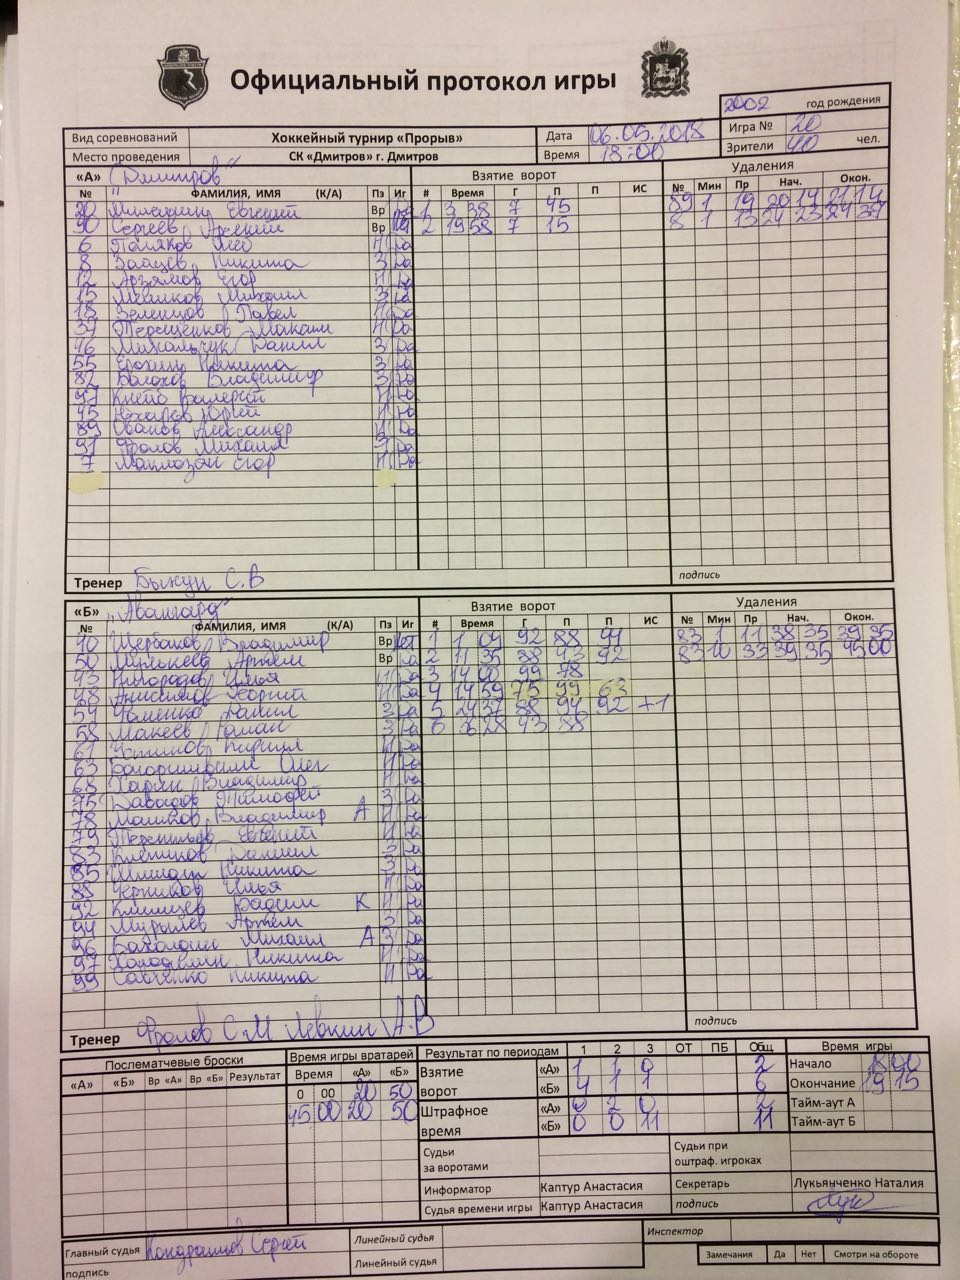 Официальный протокол игры
2002 год рождения
Вид соревнований Хоккейный турнир «Прорыв» Дата 06.05.2018 Игра № 20
Место проведения СК «Дмитров» г. Дмитров Время 18-00 Зрители 40 чел.
«А» "Дмитров" Взятие ворот Удаления
№ ФАМИЛИЯ, ИМЯ (К/А) Пз Иг # Время Г П П ИС № Мин Пр Нач. Окон.
20 Евгений Вр 1 3 38 7 45 89 1 19 20 14 21 14
90 Сергеев Арсений Вр 2 19 58 7 15 8 1 13 24 23 24 37
6 Поляков Н Да
8 Зайцев Никита З Да
12 Егор Н Да
15 Мешков Михаил З Да
18 Зеленцов Павел Н Да
37 Терещенков Максим Н Да
46 Михальчук Данил З Да
55 Ерохин Никита З Да
82 Владимир З Да
97 Валерий Н Да
45 Юрий Н Да
89 Иванов Александр Н Да
91 Фролов Михаил З Да
7 Егор Н Да
Тренер Быкун С.В подпись
«Б» "Авангард" Взятие ворот Удаления
№ ФАМИЛИЯ, ИМЯ (К/А) Пз Иг # Время Г П П ИС № Мин Пр Нач. Окон.
10 Щербаков Владимир Вр 1 1 09 92 88 94 83 1 11 38 35 39 35
50 Артём Вр Да 2 11 35 88 43 92 83 10 33 39 35 45 00
43 Илья Н Да 3 14 00 99 78
48 Анисимов Георгий Н Да 4 14 59 75 99 63
54 Данил З Да 5 24 37 88 94 92 +1
58 Макеев Роман З Да 6 28 43 88
61 Кирилл Н Да
63 Олег Н Да
68 Владимир Н Да
75 Давыдов Тимофей З Да
78 Машков Владимир А Н Да
79 Терентьев Евгений Н Да
83 Даниил З Да
85 Никита З Да
88 Черников Илья Н Да
92 Климцев Вадим К Н Да
94 Мурылев Артём З Да
96 Михаил А З Да
97 Никита Н Да
99 Савченко Никита Н Да
Тренер Фролов С М Левкин А.В подпись
Послематчевые броски Время игры вратарей Результат по периодам 1 2 3 ОТ ПБ Общ Время игры
«А» «Б» Вр «А» Вр «Б» Результат Время «А» «Б»
Взятие ворот «А» 1 1 0 2 Начало 18 00
0 00 20 50 «Б» 4 1 1 6 Окончание 19 15
45 00 20 50 Штрафное время «А» 0 2 0 2 Тайм-аут А
«Б» 0 0 11 11 Тайм-аут Б
Судьи за воротами Судьи при оштраф. игроках
Информатор Каптур Анастасия Секретарь Лукьянченко Наталия
Судья времени игры Каптур Анастасия подпись
Главный судья Кондрашов Сергей Линейный судья Инспектор
подпись Линейный судья Замечания Да Нет Смотри на обороте